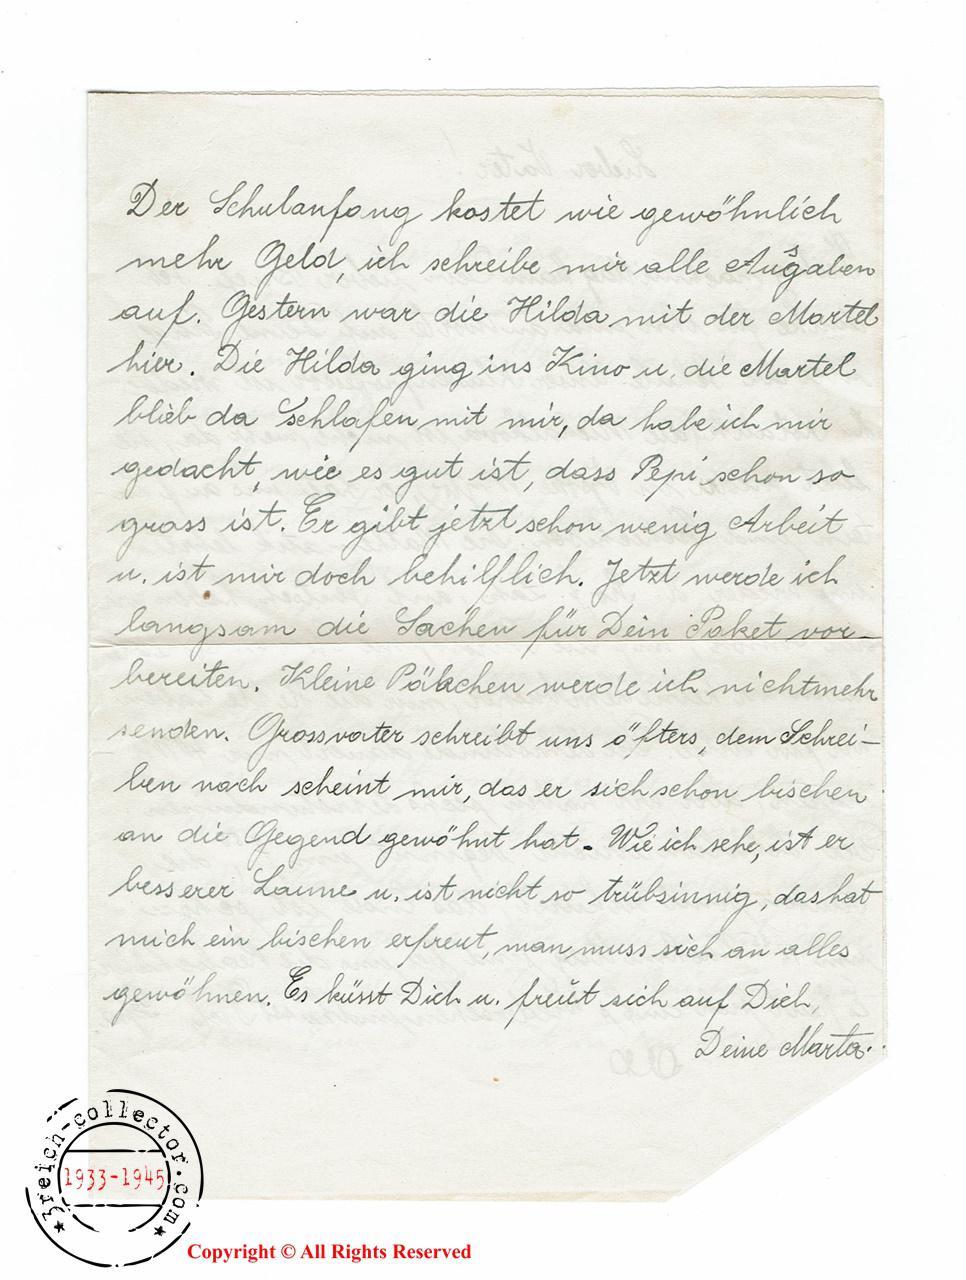 Lieber Vater!
Der Schulanfang kostet wie gewöhnlich
mehr Geld, ich schreibe mir alle Ausgaben
auf. Gestern war die Hilda mit der Martel
hier. Die Hilda ging ins Kino u. die Martel
blieb da schlafen mit mir, da habe ich mir
gedacht, wie es gut ist, dass Pepi schon so
gross ist. Er gibt jetzt schon wenig Arbeit
u. ist mir doch behilflich. Jetzt werde ich
langsam die Sachen für Dein Paket vor-
bereiten. Kleine Päkchen werde ich nichtmehr
senden. Grossvater schreibt uns öfters, dem Schrei-
ben nach scheint mir, das er sich schon bischen
an die Gegend gewöhnt hat. Wie ich sehe, ist er
besserer Laune u. ist nicht so trübsinnig, das hat
mich ein bischen erfreut, man muss sich an alles
gewöhnen. Es küsst Dich u. freut sich auf Dich,
Deine Marta.
3reich-collector.com
1933-1945
Copyright © All Rights Reserved